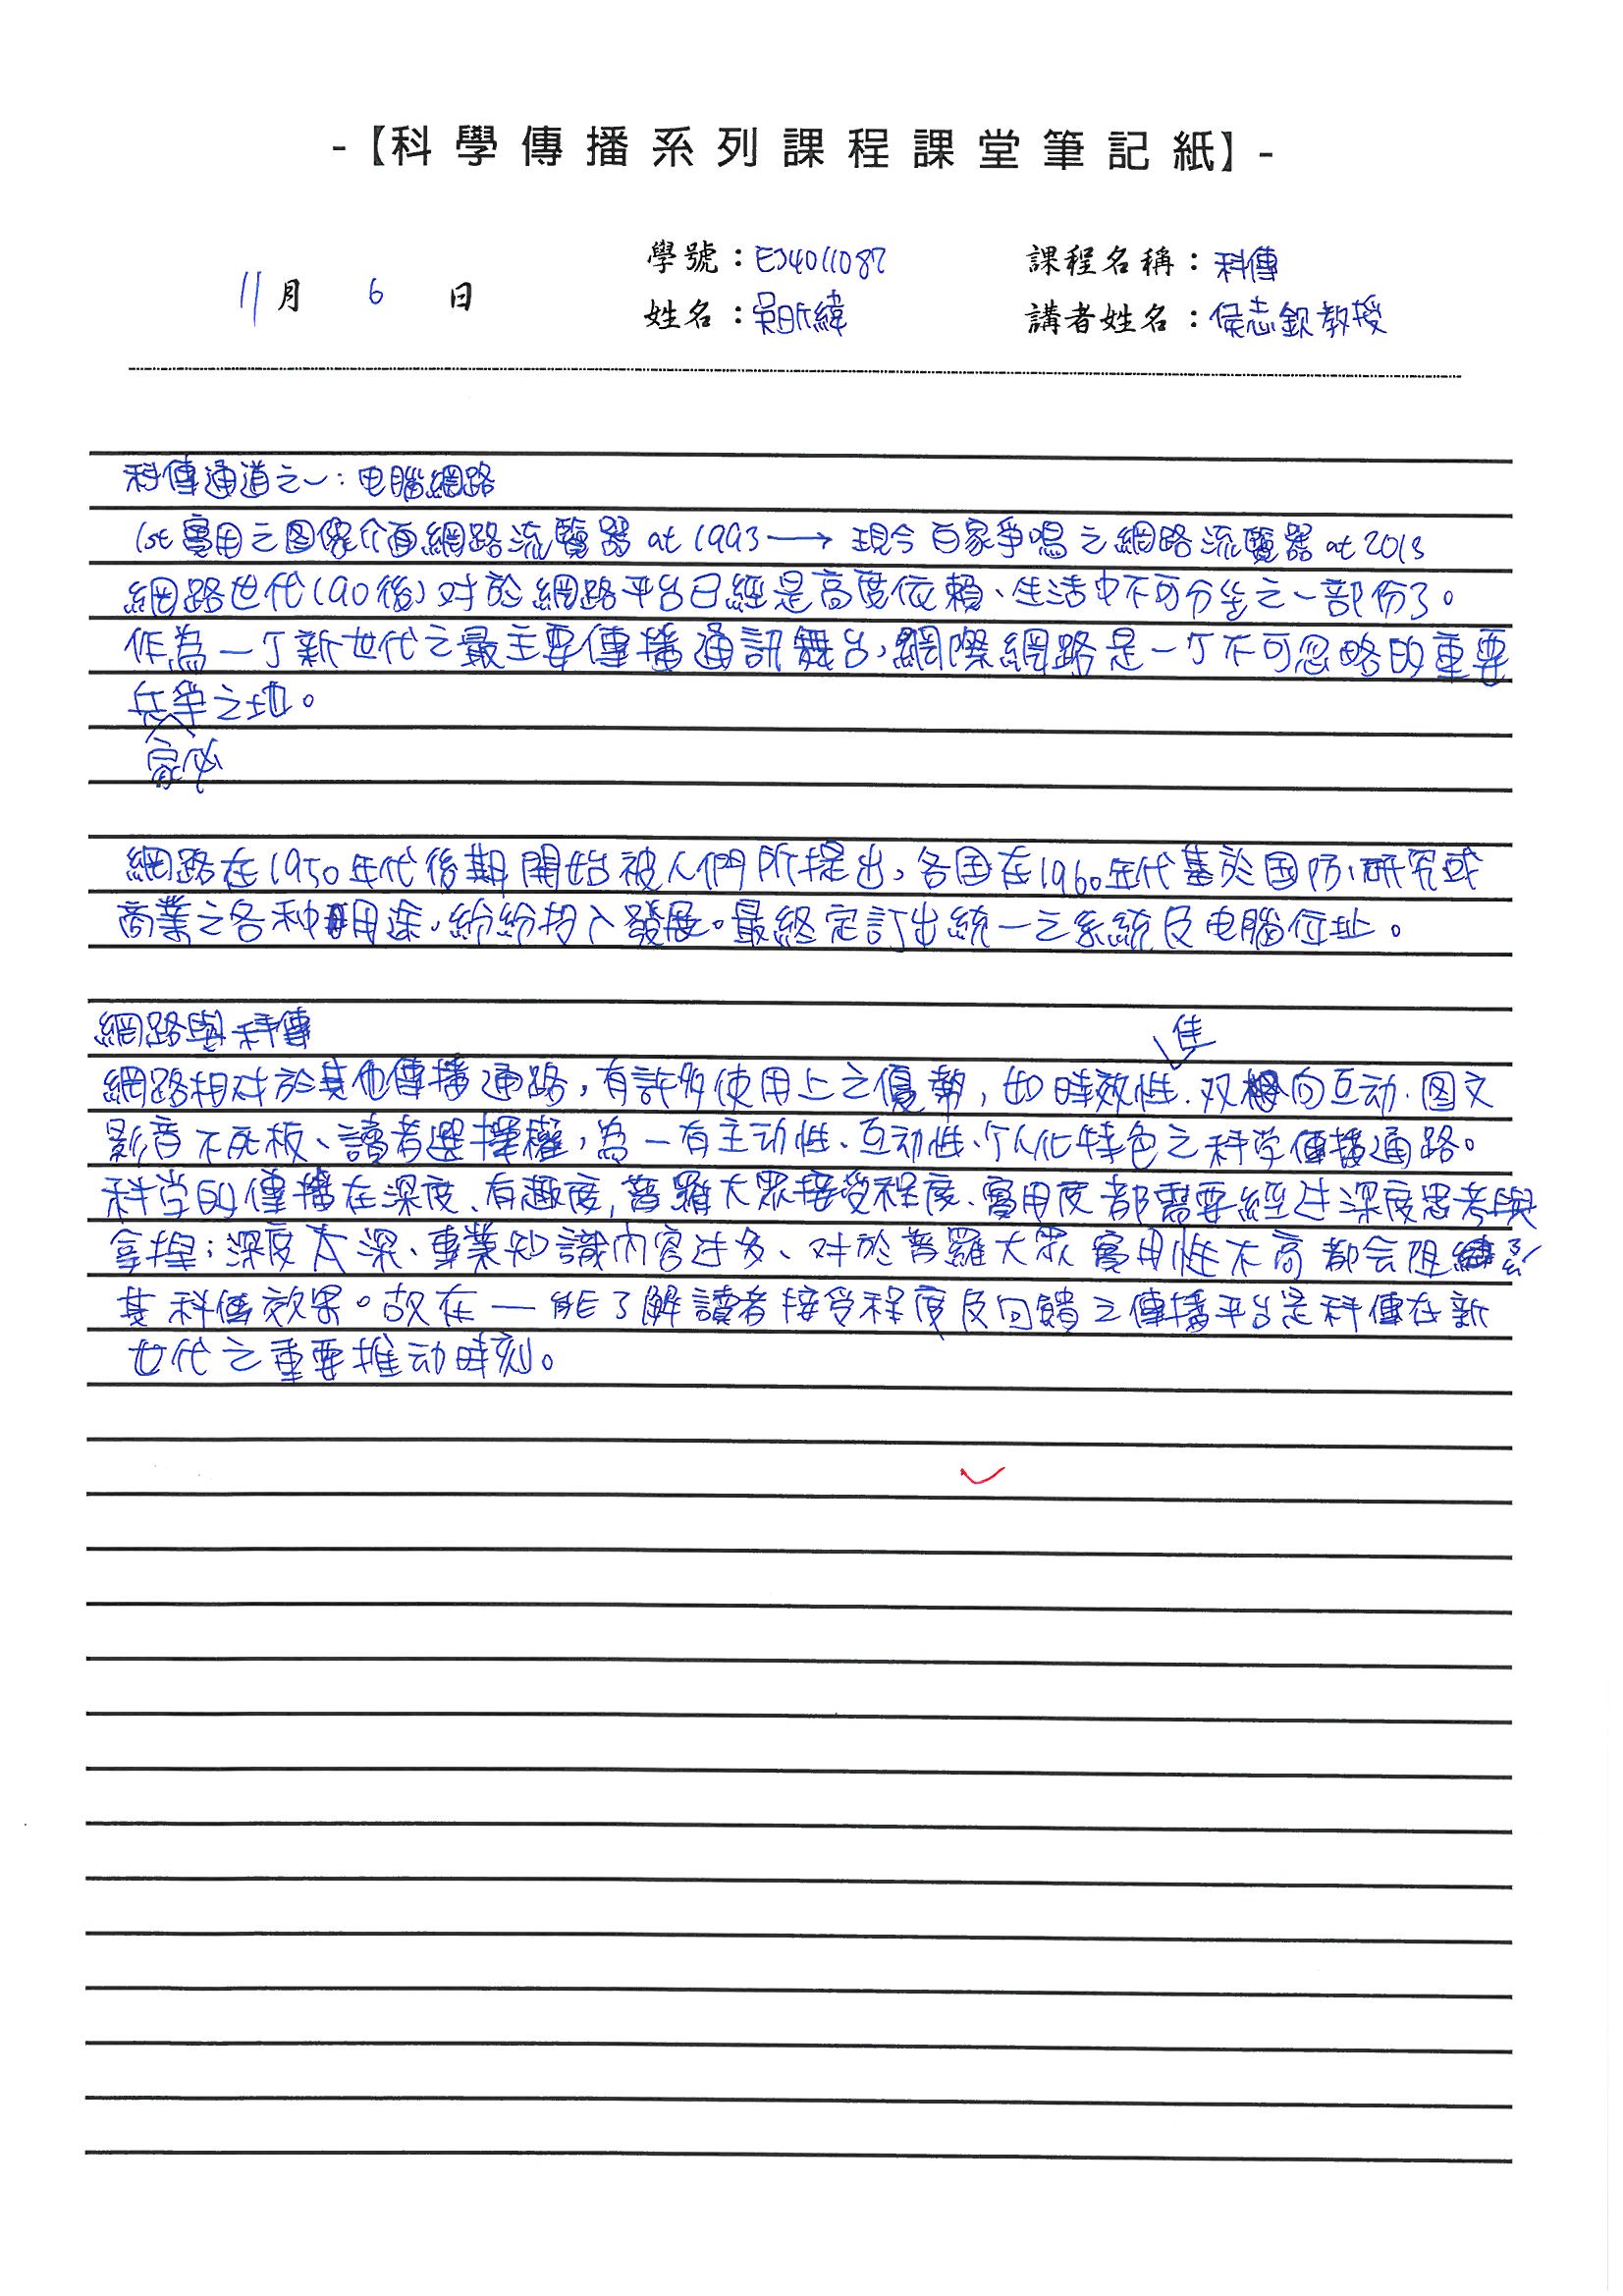 -【科學傳播系列課程課堂筆記紙】-
學號：E34011087 課程名稱：科傳
11月 6 日
姓名：吳昕緯 講者姓名：侯志欽教授
科傳通道之一：电腦網路
1st 實用之图像介面網路流覽器 at 1993 → 現今百家爭鳴之網路流覽器 at 2013
網路世代(90後)对於網路平台已經是高度依賴、生活中不可分坐之一部份了。
作為一个新世代之最主要傳播通訊舞台，網際網路是一个不可忽略的重要
兵爭之地。
家必
網路在1950年代後期開始被人們所提出，各国在1960年代基於國防、研究或
商業之各种用途，紛紛投入發展。最終定訂出統一之系統及电腦位址。
網路與科傳
佳
網路相对於其他傳播通路，有許多使用上之優勢，如時效性、双向互动、图文
影音不死板、讀者選擇權，為一有主动性、互动性、个人化特色之科学傳播通路。
科学的傳播在深度、有趣度，普羅大眾接受程度、實用度都需要經过深度思考與
拿捏；深度太深、專業知識內容过多、对於普羅大眾實用性不高都会阻
其科傳效果。故在一能了解讀者接受程度及回饋之傳播平台是科傳在新
世代之重要推动時刻。